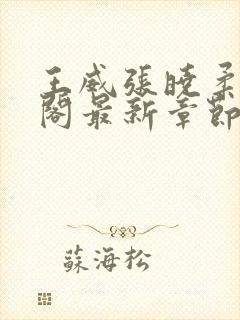 王威張曉柔
閣最新章節
蘇海松